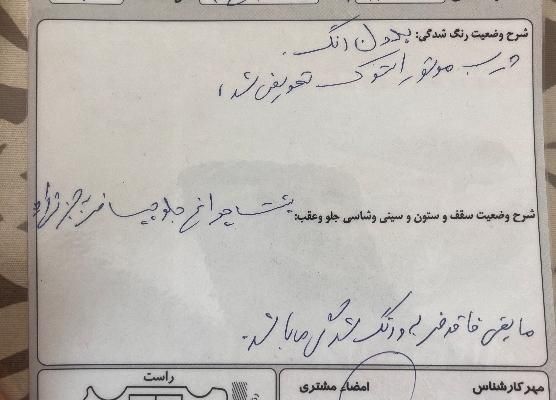 شرح وضعیت رنگ شدگی: بدون رنگ.
درب موتور استوک تعویض شد،
شرح وضعیت سقف و ستون و سینی وشاسی جلو وعقب: پشت چراغ جلو چپ ضربه جزئی
مابقی فاقد ضربه و رنگ شدگی میباشد.
مهر کارشناس
امضاء مشتری
راست